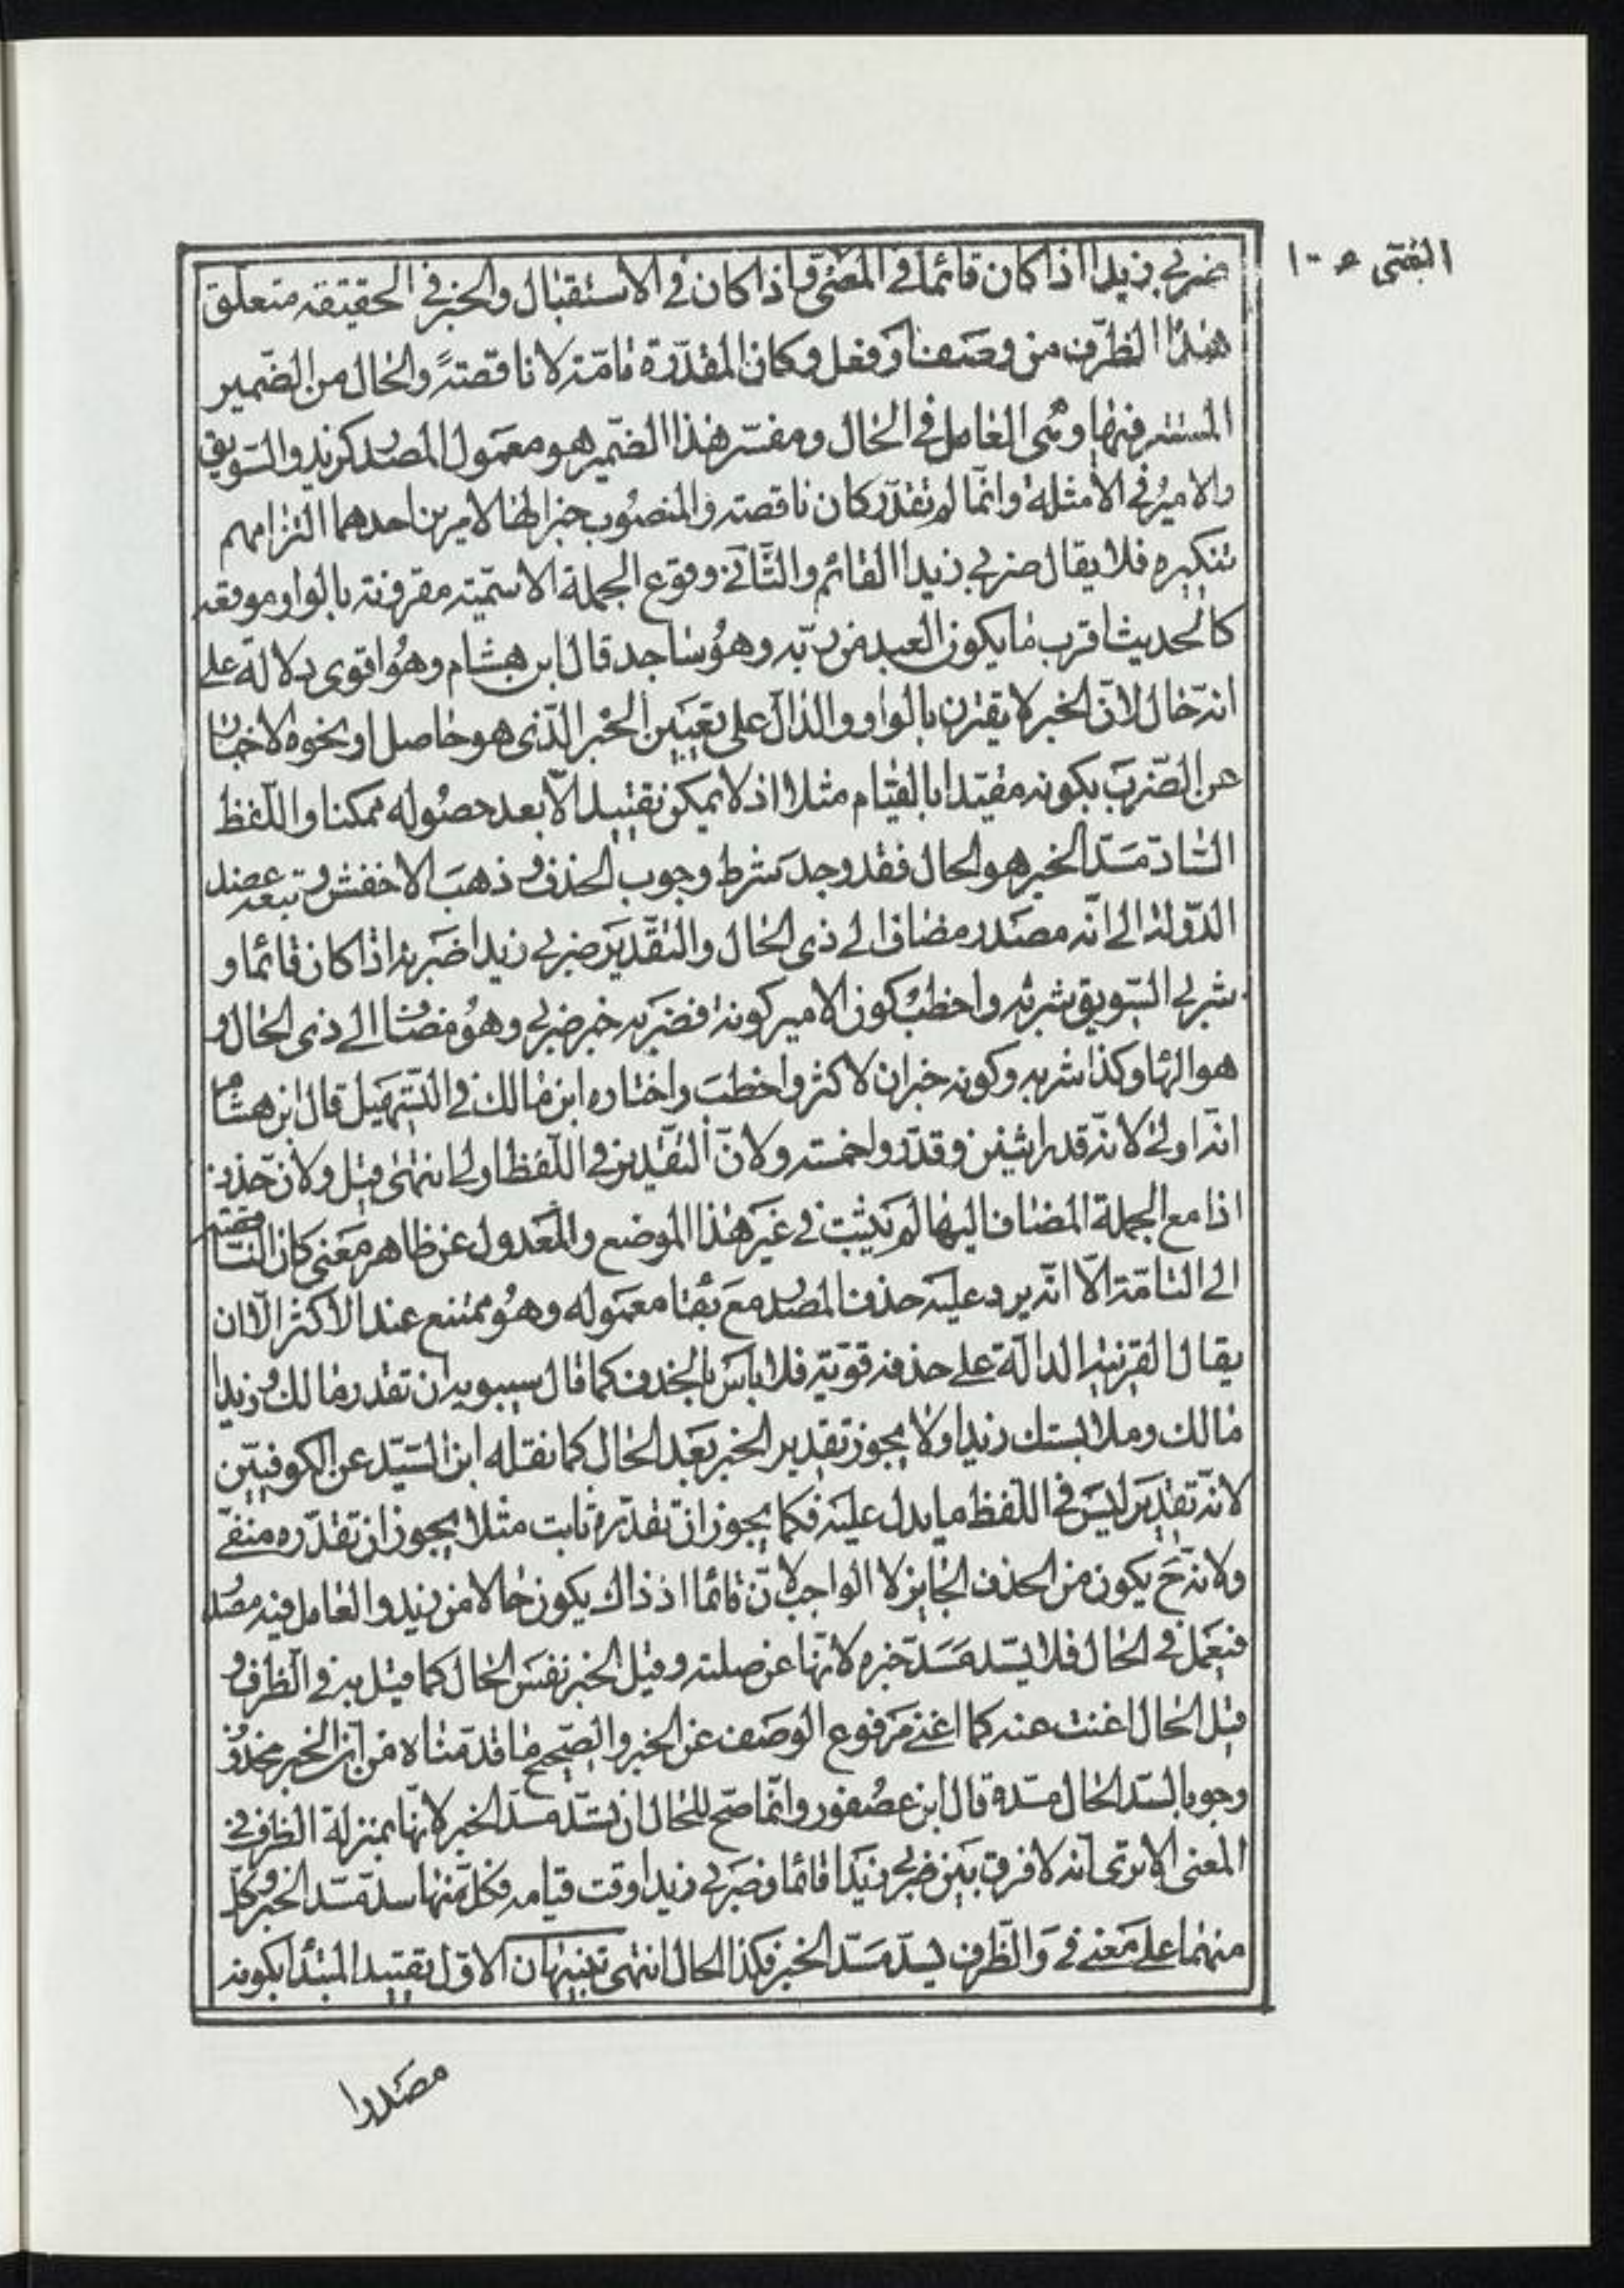 ضربى زيدا اذ كان قائما فى المضى و اذا كان فى الاستقبال والخبر فى الحقيقة متعلق
هذا الظرف من وصف او فعل وكان المقدّرة تامّة لا ناقصة والحال من الضمير
المستتر فيها وهى العامل فى الحال ومفسّر هذا الضمير هو معمول المصدر كزيد والسويق
والامير فى الامثلة وانّما لم تقدّر كان ناقصة والمنصوب خبرا لها لامرين احدهما التزامهم
تنكيره فلا يقال ضربى زيدا القائم والثّانى وقوع الجملة الاسميّة مقرونة بالواو موقعه
كالحديث اقرب ما يكون العبد من ربّه وهو ساجد قال ابن هشام وهو اقوى دلالة على
انّه حال لانّ الخبر لا يقترن بالواو والدالّ على تعيين الخبر الّذى هو حاصل او نحوه الاخبار
عن الضّرب بكونه مقيّدا بالقيام مثلا اذ لا يمكن تقييد الّا بعد حصوله ممكنا واللّفظ
السّادّ مسدّ الخبر هو الحال فقد وجد شرط وجوب الحذف و ذهب الاخفش وتبعه عضد
الدّولة الى انّه مصدر مضاف الى ذى الحال والتقدير ضربى زيدا ضربه اذا كان قائما و
شربى السّويق شربه واخطب كون الامير كونه فضربه خبر ضربى وهو مضاف الى ذى الحال و
هو الهاء وكذا شربه وكونه خبران لاكثر واخطب واختاره ابن مالك فى التّسهيل قال ابن هشام
انّه اولى لانّه قدر اثنين وقدّروا خمسة ولانّ التقدير فى اللّفظ اولى انتهى قيل ولانّ حذف
اذا مع الجملة المضاف اليها لم يثبت فى غير هذا الموضع والمعدول عن ظاهر معنى كان الناقصة
الى التامّة الّا انّه يرد عليه حذف المصدر مع بقاء معموله وهو ممتنع عند الاكثر الّا ان
يقال القرينة الدالّة على حذفه قويّة فلا باس بالحذف كما قال سيبويه ان تقدر مالك و زيدا
مالك وملابستك زيدا ولا يجوز تقدير الخبر بعد الحال كما نقله ابن السّيّد عن الكوفيّين
لانّه تقدير ليس فى اللّفظ ما يدل عليه فكما يجوز ان تقدّره ثابت مثلا يجوز ان تقدّره منفىّ
ولانّه ح يكون من الحذف الجايز لا الواجب لانّ قائما اذ ذاك يكون حالا من زيد والعامل فيه مصدر
فيعمل فى الحال فلا يسّد مسدّ خبره لانّها عن صلته وقيل الخبر نفس الحال كما قيل به فى الظرف و
قيل الحال اغنت عنه كما اغنى مرفوع الوصف عن الخبر والصّحيح ما قدّمناه من انّ الخبر محذوف
وجوبا لسدّ الحال مسدّه قال ابن عصفور وانّما صحّ للحال ان تسّد مسدّ الخبر لانّها بمنزلة الظرف فى
المعنى الا ترى انّه لا فرق بين ضربى زيدا قائما وضربى زيدا وقت قيامه فكلّ منها سدّ مسّد الخبر وكلّ
منهما على معنى فى والظّرف يسدّ مسدّ الخبر فكذا الحال انتهى تنبيهان الاوّل تقييد المبتدأ بكونه
مصدرا